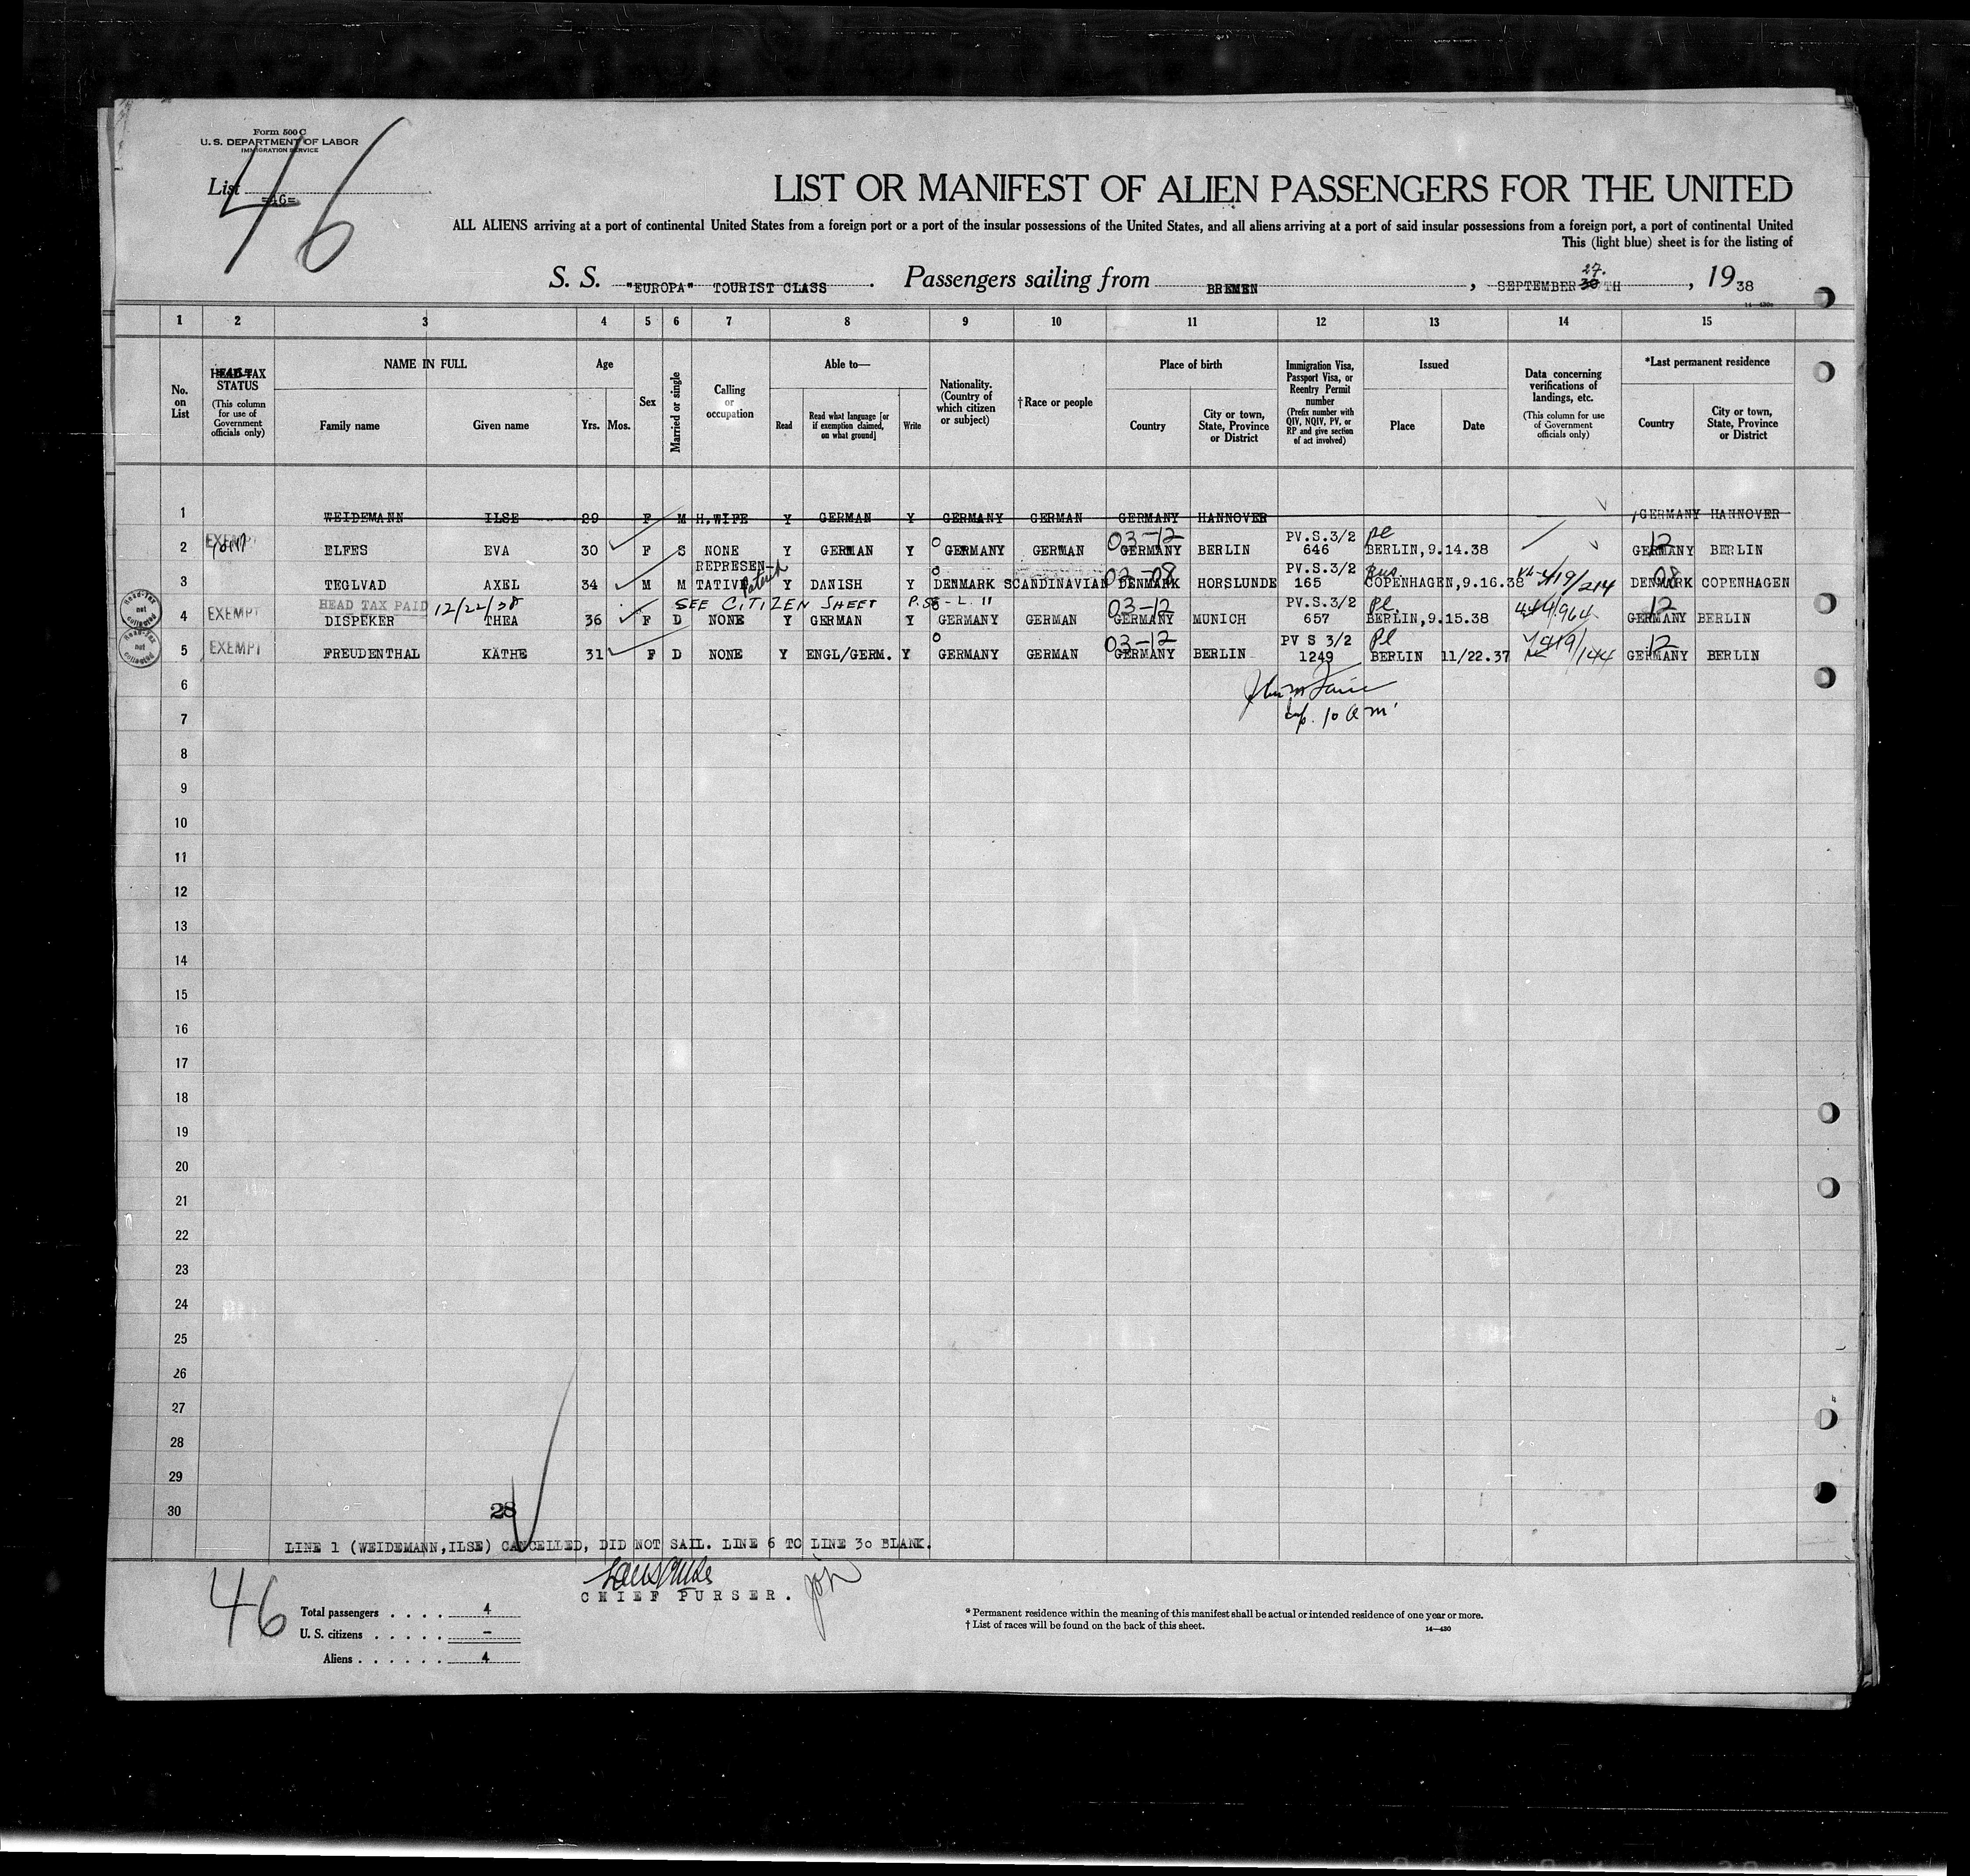 Form 500 C
U. S. DEPARTMENT OF LABOR
IMMIGRATION SERVICE
List =46=
46
LIST OR MANIFEST OF ALIEN PASSENGERS FOR THE UNITED
ALL ALIENS arriving at a port of continental United States from a foreign port or a port of the insular possessions of the United States, and all aliens arriving at a port of said insular possessions from a foreign port, a port of continental United
This (light blue) sheet is for the listing of
27.
S. S. "EUROPA" TOURIST CLASS . Passengers sailing from BREMEN , SEPTEMBER 30 TH , 19 38
1 2 3 4 5 6 7 8 9 10 11 12 13 14 15
No. on List
HEAD-TAX STATUS (This column for use of Government officials only)
NAME IN FULL
Family name Given name
Age
Yrs. Mos.
Sex
Married or single
Calling or occupation
Able to—
Read
Read what language [or if exemption claimed, on what ground]
Write
Nationality. (Country of which citizen or subject)
†Race or people
Place of birth
Country
City or town, State, Province or District
Immigration Visa, Passport Visa, or Reentry Permit number (Prefix number with QIV, NQIV, PV, or RP and give section of act involved)
Issued
Place Date
Data concerning verifications of landings, etc. (This column for use of Government officials only)
*Last permanent residence
Country
City or town, State, Province or District
1 WEIDEMANN ILSE 29 F M H.WIFE Y GERMAN Y GERMANY GERMAN GERMANY HANNOVER GERMANY HANNOVER
EXEMPT 03-12 PV.S.3/2 12
2 ELFES EVA 30 F S NONE Y GERMAN Y GERMANY GERMAN GERMANY BERLIN 646 BERLIN,9.14.38 GERMANY BERLIN
REPRESEN- 03-08 PV.S.3/2 08
3 TEGLVAD AXEL 34 M M TATIVE Y DANISH Y DENMARK SCANDINAVIAN DENMARK HORSLUNDE 165 COPENHAGEN,9.16.38 DENMARK COPENHAGEN
HEAD TAX PAID 12/22/38 SEE CITIZEN SHEET 03-12 PV.S.3/2 12
4 EXEMPT DISPEKER THEA 36 F D NONE Y GERMAN Y GERMANY GERMAN GERMANY MUNICH 657 BERLIN,9.15.38 GERMANY BERLIN
03-12 PV S 3/2 12
5 EXEMPT FREUDENTHAL KÄTHE 31 F D NONE Y ENGL/GERM. Y GERMANY GERMAN GERMANY BERLIN 1249 BERLIN 11/22.37 GERMANY BERLIN
Head-Tax not collected
Head-Tax not collected
6
10 am
7
8
9
10
11
12
13
14
15
16
17
18
19
20
21
22
23
24
25
26
27
28
29
30
28
LINE 1 (WEIDEMANN,ILSE) CANCELLED, DID NOT SAIL. LINE 6 TO LINE 30 BLANK.
CHIEF PURSER.
46
Total passengers . . . . 4
U. S. citizens . . . . . –
Aliens . . . . . . 4
* Permanent residence within the meaning of this manifest shall be actual or intended residence of one year or more.
† List of races will be found on the back of this sheet.
14—430